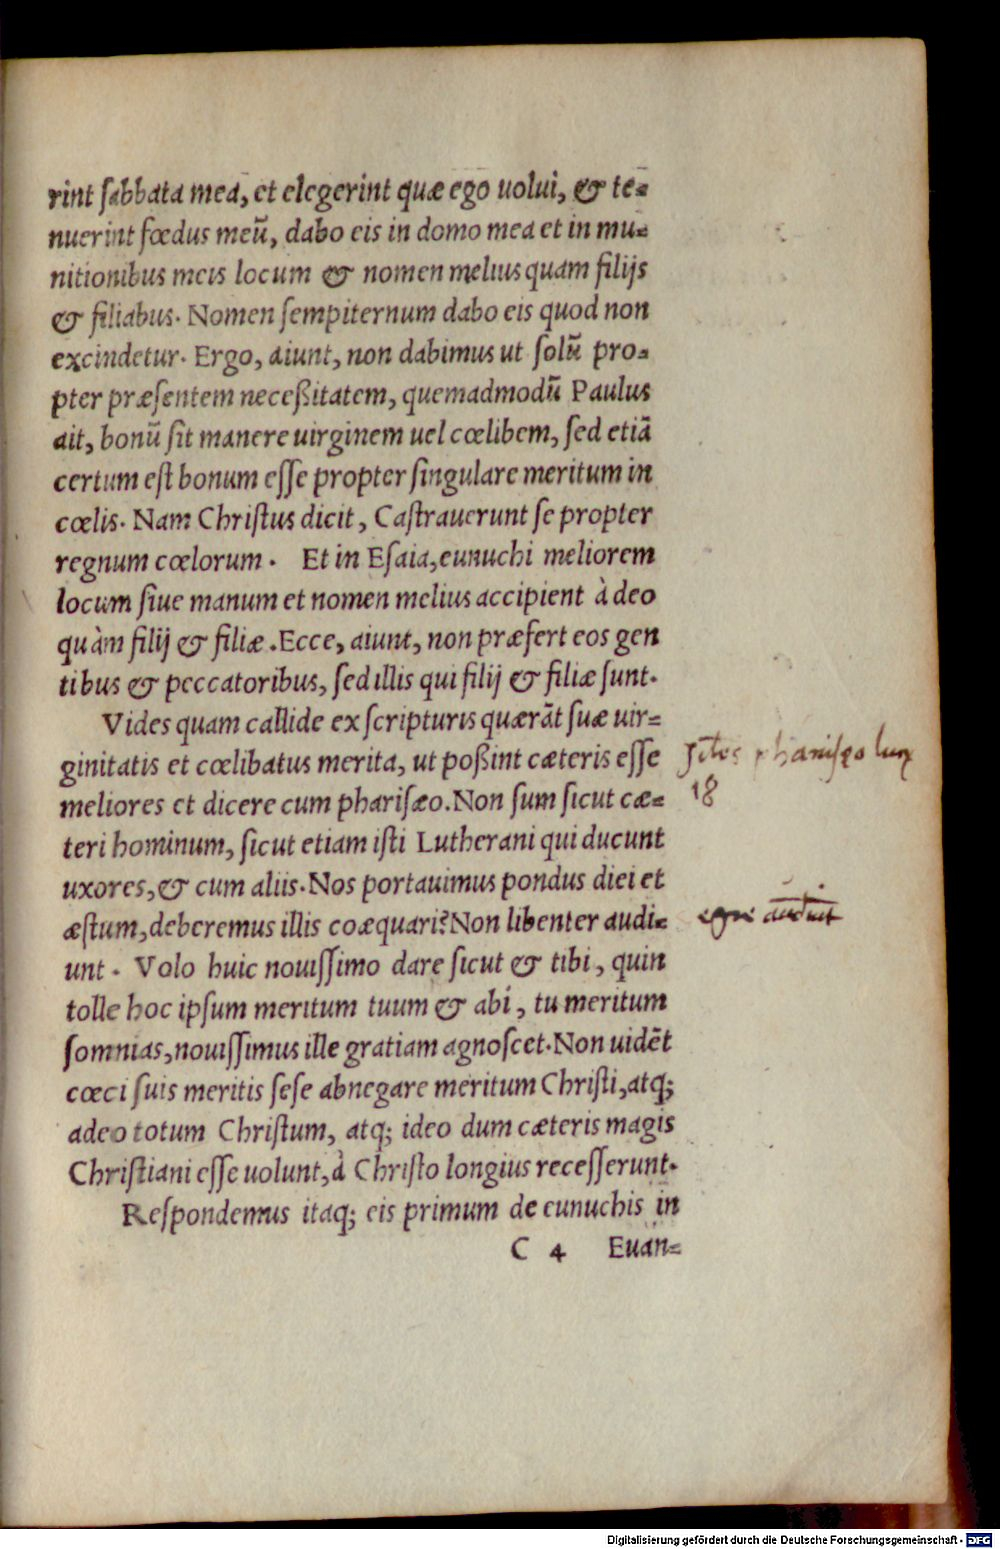 rint ſabbata mea, et elegerint quæ ego uolui, & te-
nuerint fœdus meū, dabo eis in domo mea et in mu-
nitionibus meis locum & nomen melius quam filijs
& filiabus. Nomen ſempiternum dabo eis quod non
excindetur. Ergo, aiunt, non dabimus ut ſolū pro-
pter præſentem neceßitatem, quemadmodū Paulus
ait, bonū ſit manere uirginem uel cœlibem, ſed etiā
certum eſt bonum eſſe propter ſingulare meritum in
cœlis. Nam Chriſtus dicit, Caſtrauerunt ſe propter
regnum cœlorum. Et in Eſaia, eunuchi meliorem
locum ſiue manum et nomen melius accipient à deo
quàm filij & filiæ. Ecce, aiunt, non præfert eos gen
tibus & peccatoribus, ſed illis qui filij & filiæ ſunt.
Vides quam callide ex ſcripturis quærāt ſuæ uir-
ginitatis et cœlibatus merita, ut poßint cæteris eſſe
meliores et dicere cum phariſæo. Non ſum ſicut cæ-
18
teri hominum, ſicut etiam iſti Lutherani qui ducunt
uxores, & cum aliis. Nos portauimus pondus diei et
æſtum, deberemus illis coæquari? Non libenter audi-
audiūt
unt. Volo huic nouiſſimo dare ſicut & tibi, quin
tolle hoc ipſum meritum tuum & abi, tu meritum
ſomnias, nouiſſimus ille gratiam agnoſcet. Non uidēt
cœci ſuis meritis ſeſe abnegare meritum Chriſti, atq;
adeo totum Chriſtum, atq; ideo dum cæteris magis
Chriſtiani eſſe uolunt, à Chriſto longius receſſerunt.
Reſpondemus itaq; eis primum de eunuchis in
C 4 Euan-
Digitalisierung gefördert durch die Deutsche Forschungsgemeinschaft - DFG